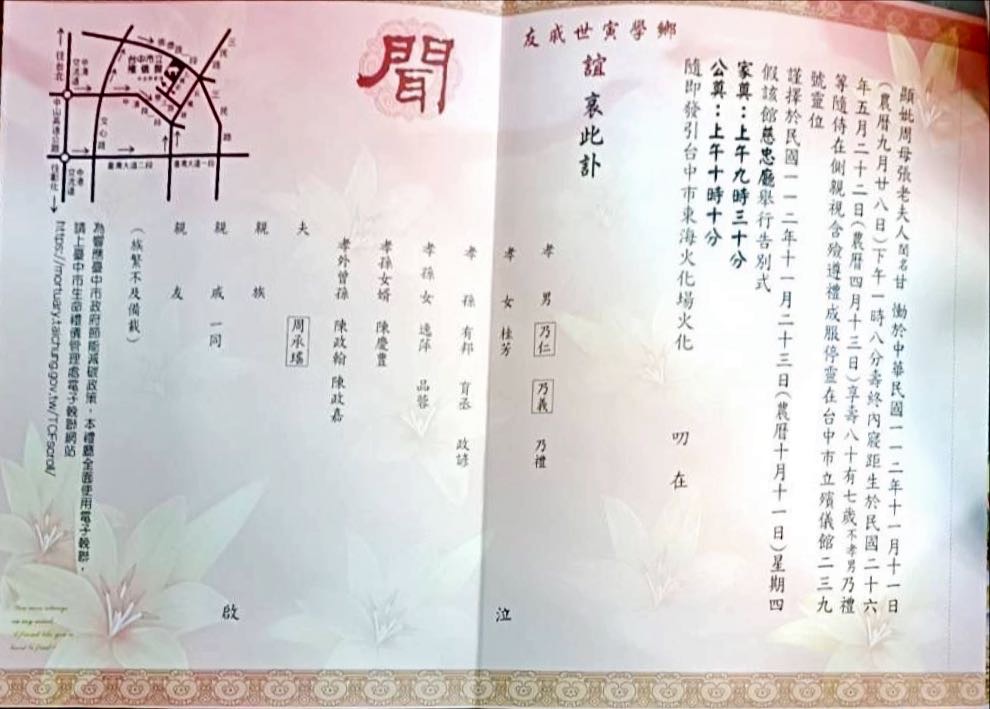 顯妣周母張老夫人閨名甘 慟於中華民國一一二年十一月十一日
(農曆九月廿八日)下午一時八分壽終內寢距生於民國二十六
年五月二十二日(農曆四月十三日)享壽八十有七歲不孝男乃禮
等隨侍在側親視含殮遵禮成服停靈在台中市立殯儀館二三九
號靈位
謹擇於民國一一二年十一月二十三日(農曆十月十一日)星期四
假該館慈忠廳舉行告別式
家奠:上午九時三十分
公奠:上午十時十分
隨即發引台中市東海火化場火化
叨在
鄉學寅世戚友
誼 哀此訃
聞
孝男 乃仁 乃義 乃禮
孝女 桂芳
孝孫 有邦 育丞 政諺
孝孫女 逸萍 品蓉
孝孫女婿 陳慶豐
孝外曾孫 陳政翰 陳政嘉
夫 周承瑤
親族
親戚 一同
親友
泣
啟
(族繁不及備載)
為響應臺中市政府節能減碳政策,本禮廳全面使用電子輓聯,
請上臺中市生命禮儀管理處電子輓聯網站
https://mortuary.taichung.gov.tw/TCFscroll/
往台北
中港交流道
中山高速公路
往彰化
中港交流道
文心路
崇德路一段
台中市立殯儀館
三民路
三民路
臺灣大道二段
臺灣大道一段